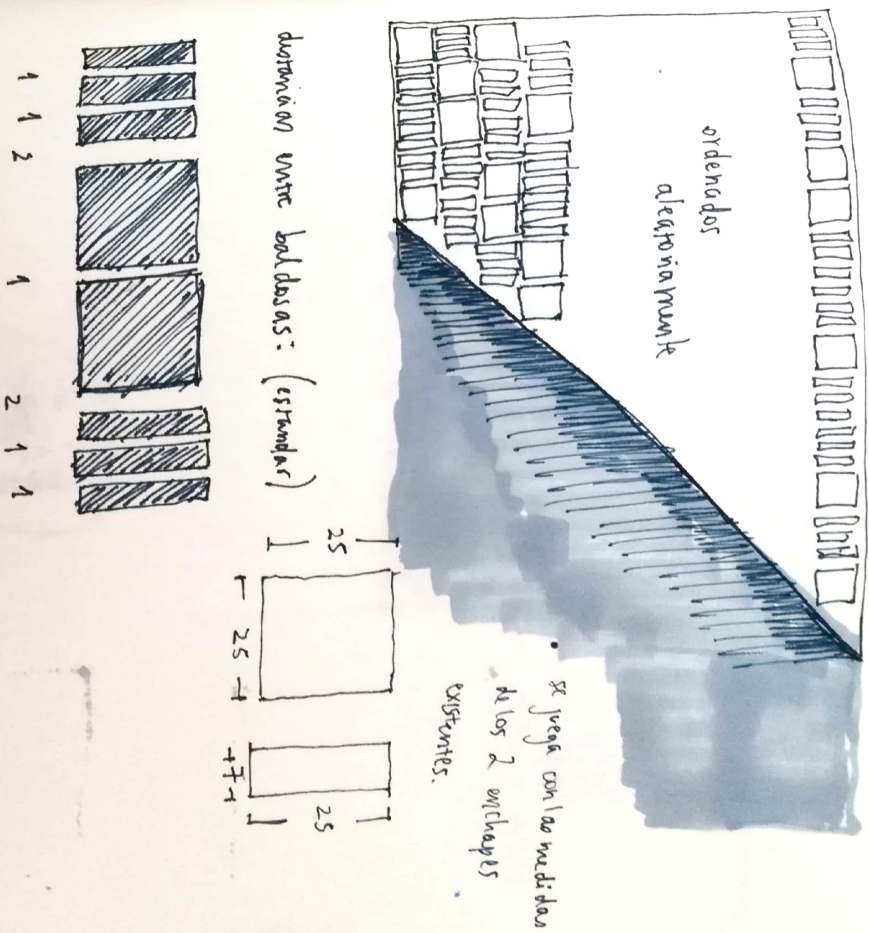 ordenados
aleatoriamente
se juega con las medidas
de los 2 enchapes
existentes.
distancias entre baldosas: (estandar)
25
25
7
25
1 1 2 1 2 1 1